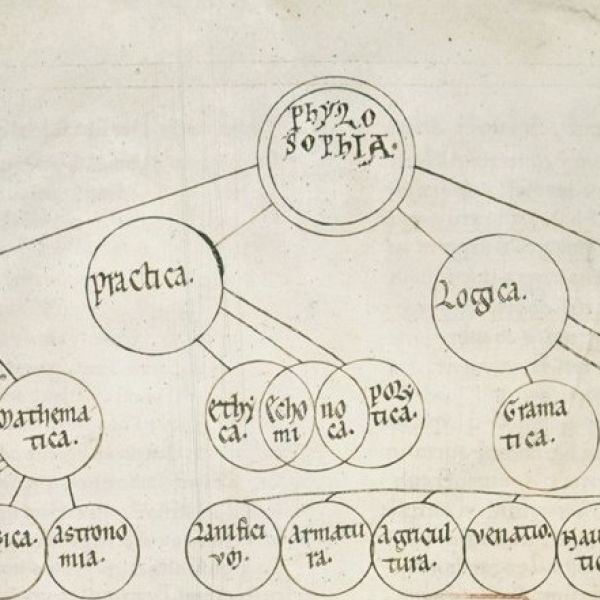 phylo
sophia.
practica.
Logica.
Mathema
tica.
ethy
ca.
echo
mi
no
ca.
poly
tica.
Grama
tica.
sica.
astrono
mia.
Lanifici
um.
armatu
ra.
agricul
tura.
venatio.
Nau
tic